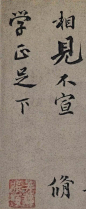 相見不宣　脩
学正足下